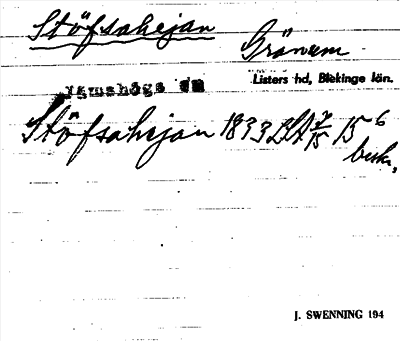 Stöfsahejan
Gränum
Listers hd, Blekinge län.
Stöfsahejan 1833 BLA 7/15 15 6
beskr,
J. SWENNING 194